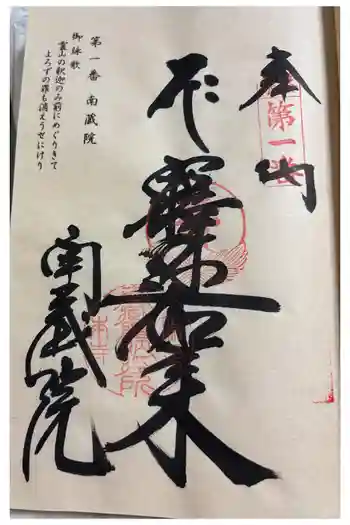 奉
第一番
釈迦如来
南蔵院
第一番 南蔵院
御詠歌
霊山の釈迦のみ前にめぐりきて
よろずの罪も消えうせにけり